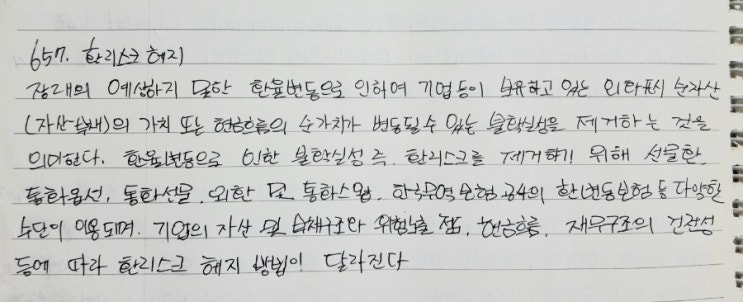 657. 환리스크 헤지
장래의 예상하지 못한 환율변동으로 인하여 기업 등이 보유하고 있는 외화표시 순자산
(자산-부채)의 가치 또는 현금흐름의 순가치가 변동될 수 있는 불확실성을 제거하는 것을
의미한다. 환율변동으로 인한 불확실성 즉, 환리스크를 제거하기 위해 선물환,
통화옵션, 통화선물, 외환 및 통화스왑, 한국무역보험공사의 환변동보험 등 다양한
수단이 이용되며, 기업의 자산 및 부채구조와 위험노출 정도, 현금흐름, 재무구조의 건전성
등에 따라 환리스크 헤지 방법이 달라진다